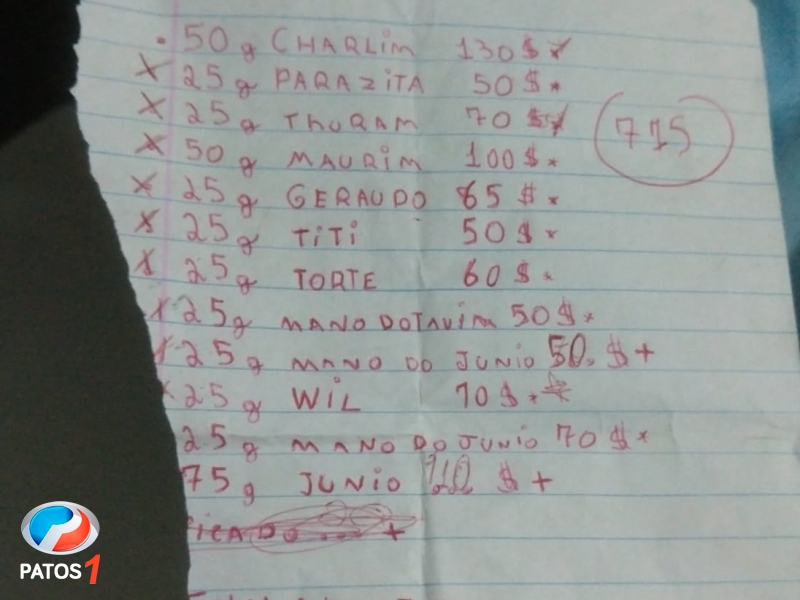 . 50g CHARLIM 130$ x
X 25g PARAZITA 50$ *
X 25g THURAM 70$
715
X 50g MAURIM 100$ *
X 25g GERAUDO 65$ *
X 25g TITI 50$ *
X 25g TORTE 60$ *
X 25g MANO DO TAVIM 50$ *
X 25g MANO DO JUNIO 50. $ +
X 25g WIL 70$ *
25g MANO DO JUNIO 70$ *
75g JUNIO $ +
PATOS 1